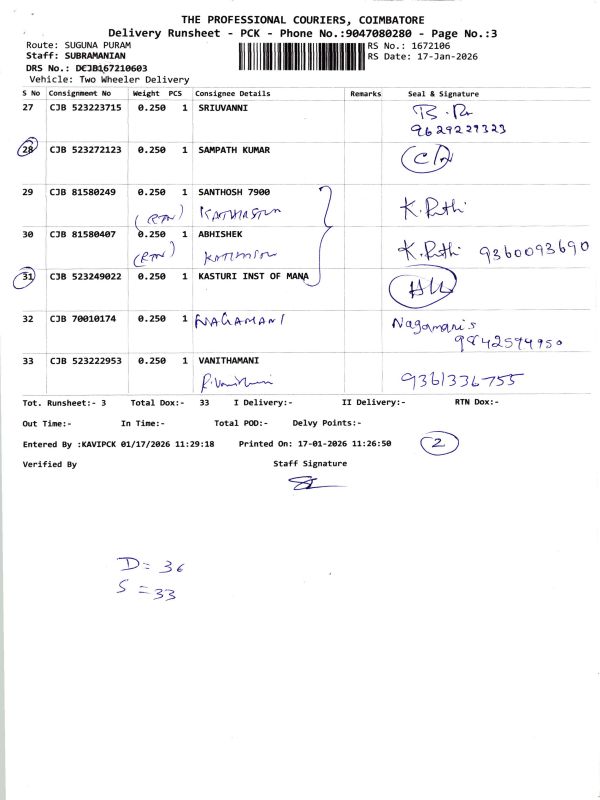 THE PROFESSIONAL COURIERS, COIMBATORE
Delivery Runsheet - PCK - Phone No.:9047080280 - Page No.:3
Route: SUGUNA PURAM RS No.: 1672106
Staff: SUBRAMANIAN RS Date: 17-Jan-2026
DRS No.: DCJB167210603
Vehicle: Two Wheeler Delivery
S No Consignment No Weight PCS Consignee Details Remarks Seal & Signature
27 CJB 523223715 0.250 1 SRIUVANNI
9629229323
28 CJB 523272123 0.250 1 SAMPATH KUMAR
29 CJB 81580249 0.250 1 SANTHOSH 7900
(RTN) K. Ruthi
30 CJB 81580407 0.250 1 ABHISHEK
(RTN) K. Ruthi 9360093690
31 CJB 523249022 0.250 1 KASTURI INST OF MANA
32 CJB 70010174 0.250 1 NAGAMANI Nagamani s
9842594950
33 CJB 523222953 0.250 1 VANITHAMANI
9361336755
Tot. Runsheet:- 3 Total Dox:- 33 I Delivery:- II Delivery:- RTN Dox:-
Out Time:- In Time:- Total POD:- Delvy Points:-
Entered By :KAVIPCK 01/17/2026 11:29:18 Printed On: 17-01-2026 11:26:50 2
Verified By Staff Signature
D = 36
S = 33